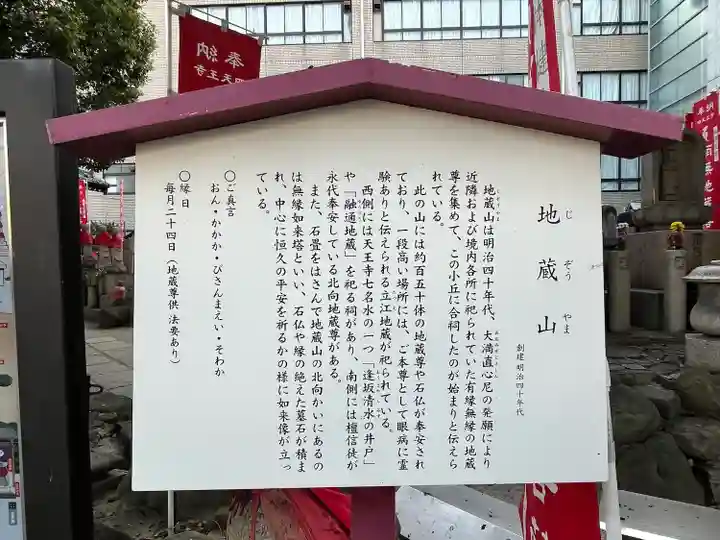 地蔵山
じ ぞう やま
創建 明治四十年代
地蔵山は明治四十年代、大満直心尼の発願により
近隣および境内各所に祀られていた有縁無縁の地蔵
尊を集めて、この小丘に合祠したのが始まりと伝えら
れている。
此の山には約百五十体の地蔵尊や石仏が奉安され
ており、一段高い場所には、ご本尊として眼病に霊
験ありと伝えられる立江地蔵が祀られている。
西側には天王寺七名水の一つ「逢坂清水の井戸」
や「融通地蔵」を祀る祠があり、南側には檀信徒が
永代奉安している北向地蔵尊がある。
また、石畳をはさんで地蔵山の北向かいにあるの
は無縁如来塔といい、石仏や縁の絶えた墓石が積ま
れ、中心に恒久の平安を祈るかの様に如来像が立っ
ている。
〇ご真言
おん・かかか・びさんまえい・そわか
〇縁日
毎月二十四日（地蔵尊供 法要あり）
奉納
四天王寺
奉納